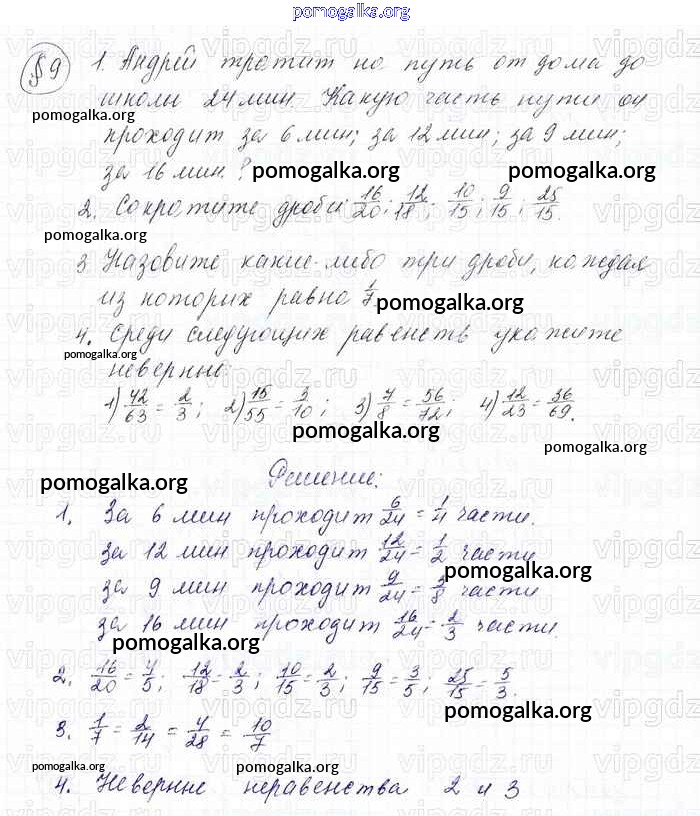 pomogalka.org
§9 1. Андрей тратит на путь от дома до
школы 24 мин. Какую часть пути он
pomogalka.org
проходит за 6 мин; за 12 мин; за 9 мин;
за 16 мин.? pomogalka.org pomogalka.org
2. Сократите дроби: 16/20; 12/18; 10/15; 9/15; 25/15.
pomogalka.org
3. Назовите какие-либо три дроби, каждая
из которых равно 1/7 pomogalka.org
4. Среди следующих равенств укажите
pomogalka.org
неверные:
1) 42/63 = 2/3; 2) 15/55 = 3/10; 3) 7/8 = 56/72; 4) 12/23 = 36/69.
pomogalka.org
Решение:
pomogalka.org
1. За 6 мин проходит 6/24 = 1/4 части.
за 12 мин проходит 12/24 = 1/2 части
pomogalka.org
за 9 мин проходит 9/24 = 3/8 части
за 16 мин проходит 16/24 = 2/3 части.
pomogalka.org
2. 16/20 = 4/5; 12/18 = 2/3; 10/15 = 2/3; 9/15 = 3/5; 25/15 = 5/3.
pomogalka.org
3. 1/7 = 2/14 = 4/28 = 10/7
pomogalka.org pomogalka.org
4. Неверные неравенства 2 и 3